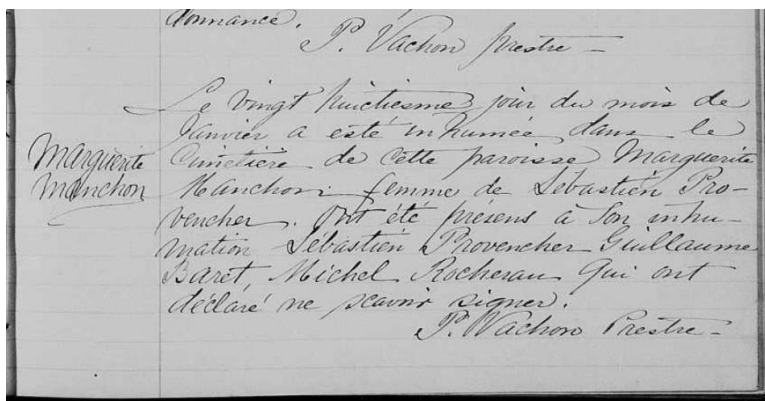 donnance.
P. Vachon prestre -
Le vingt huictiesme jour du mois de
Janvier a esté inhumée dans le
Cimetière de cette paroisse Marguerite
Manchon femme de Sébastien Pro-
vencher. Ont été présens à son inhu-
mation Sébastien Provencher Guillaume
Baret, Michel Rocherau Qui ont
déclaré ne scavoir signer.
P. Vachon Prestre -
Marguerite
Manchon